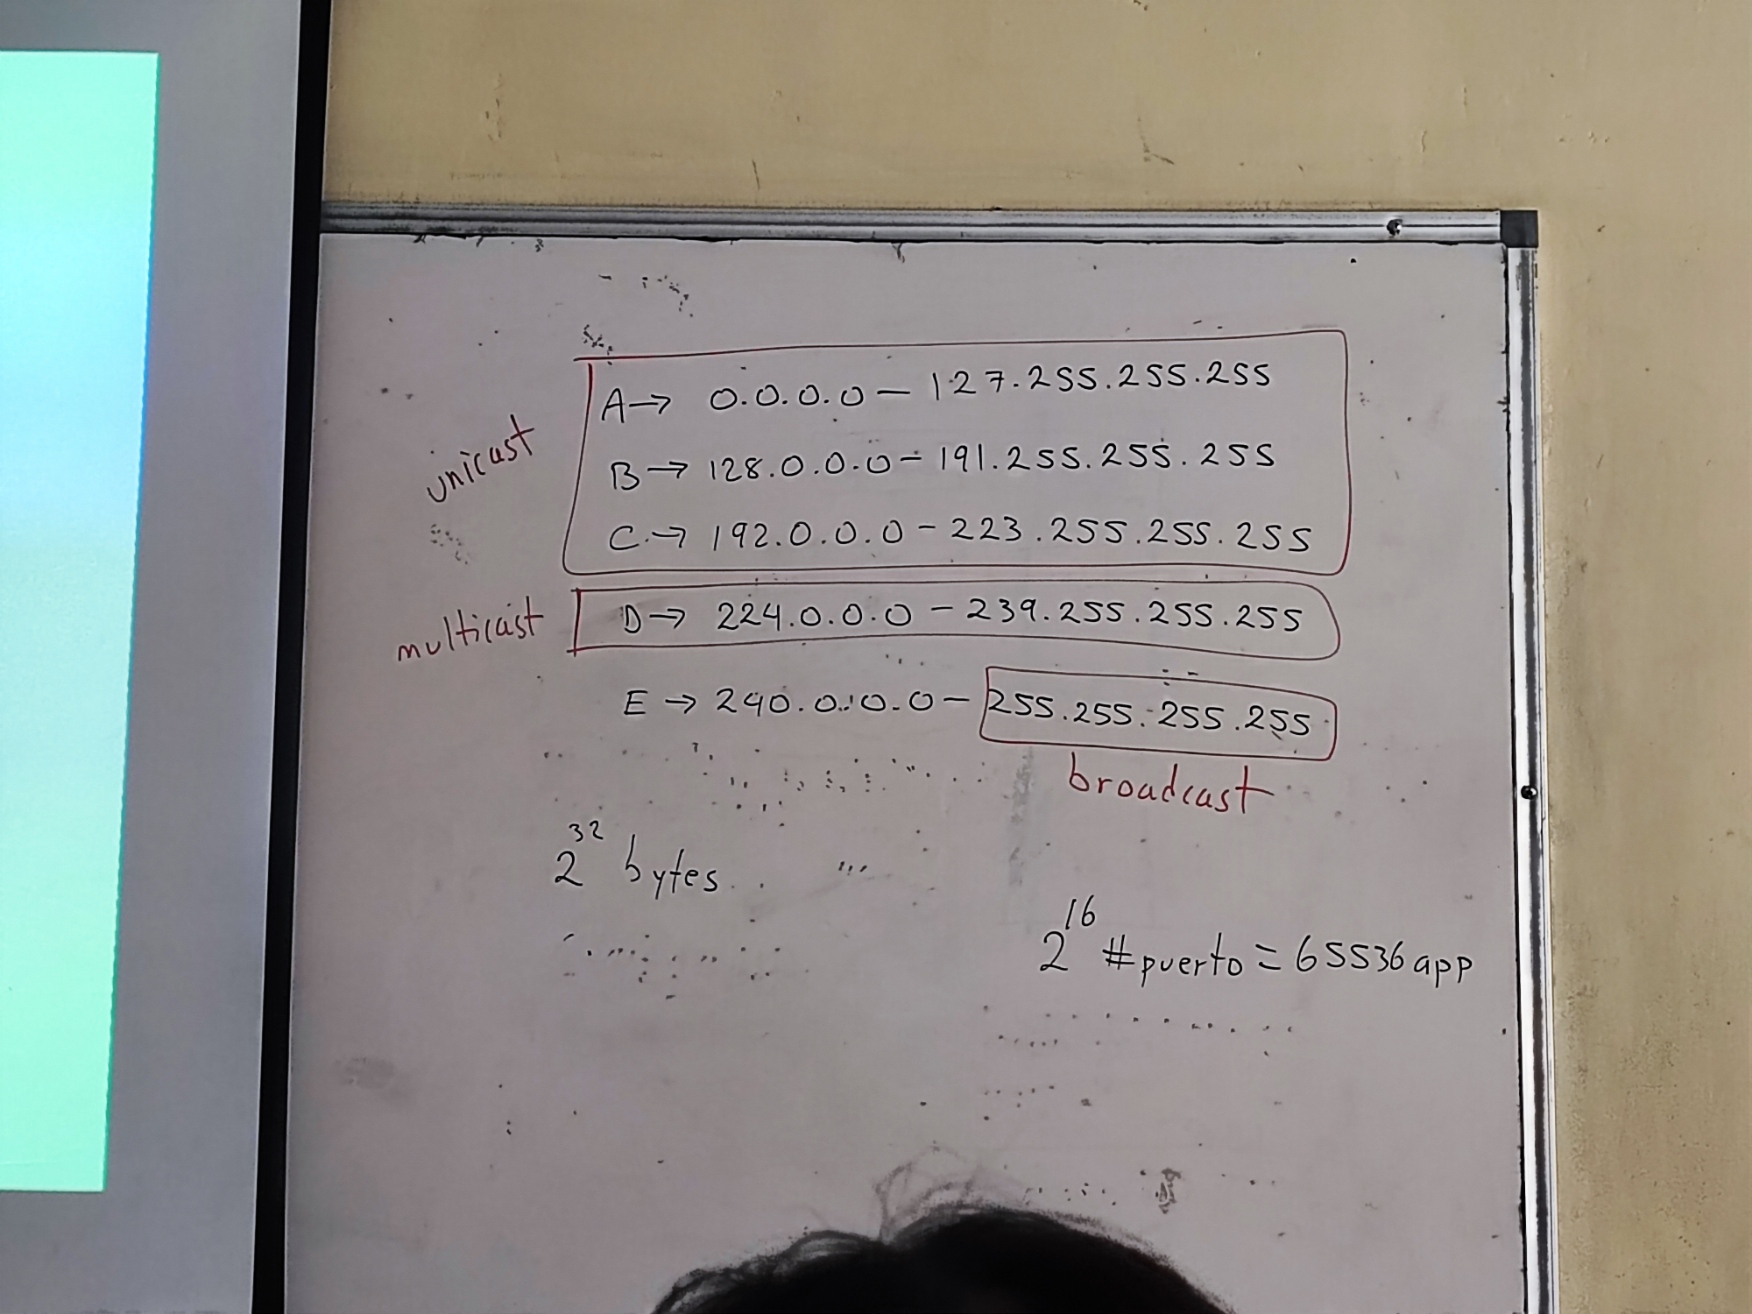 A→ 0.0.0.0 – 127.255.255.255
unicast
B→ 128.0.0.0 – 191.255.255.255
C.→ 192.0.0.0 – 223.255.255.255
multicast
D→ 224.0.0.0 – 239.255.255.255
E → 240.0.0.0 – 255.255.255.255
broadcast
2³² bytes
2¹⁶ #puerto = 65536 app